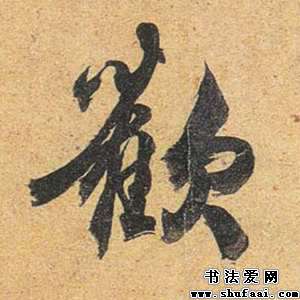 歡
书法爱网
www.shufaai.com